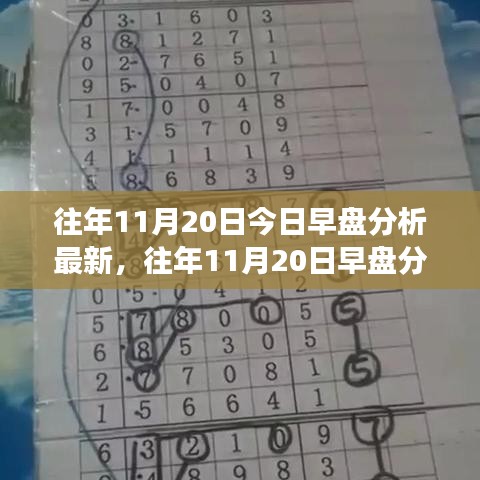 0 3 1 6 0 3
8 8 1 2 7 1
0 2 7 6 5 1
9 5 0 4 0 7
1 7 0 0 4 8
3 1 5 7 0 9
4 1 1 1 1 4
5 8 6 8 3 9
往年11月20日今日早盘分析
最新，往年11月20日早盘分
0 5 0 4 1 2
5 7 8 0 0 5 5
6 8 5 3 0 5
2 7 7 0 8 1 5
1 5 6 6 4 1
6 3 2 1 0 9 7
4 8 9 8 3